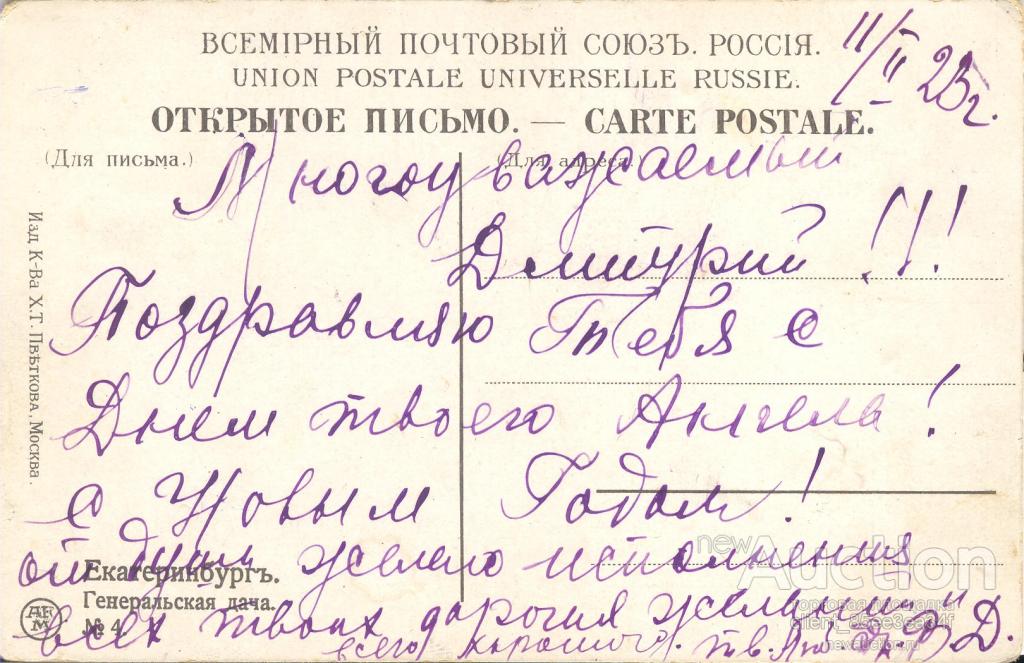 ВСЕМІРНЫЙ ПОЧТОВЫЙ СОЮЗЪ. РОССІЯ.
UNION POSTALE UNIVERSELLE RUSSIE.
ОТКРЫТОЕ ПИСЬМО. — CARTE POSTALE.
11/II 25 г.
(Для письма.)
(Для адреса.)
Многоуважаемый
Дмитрий !!!
Поздравляю Тебя с
Днем твоего Ангела!
с Новым Годом!
от души желаю исполнения
всех твоих дорогия
всего хорошого. Тв.
Д.
Екатеринбургъ.
Генеральская дача.
№ 4
Изд К-Ва Х.Т. Пвѣткова, Москва.
newAuction
торговая площадка
client_85ee3ea34f
newauction.ru